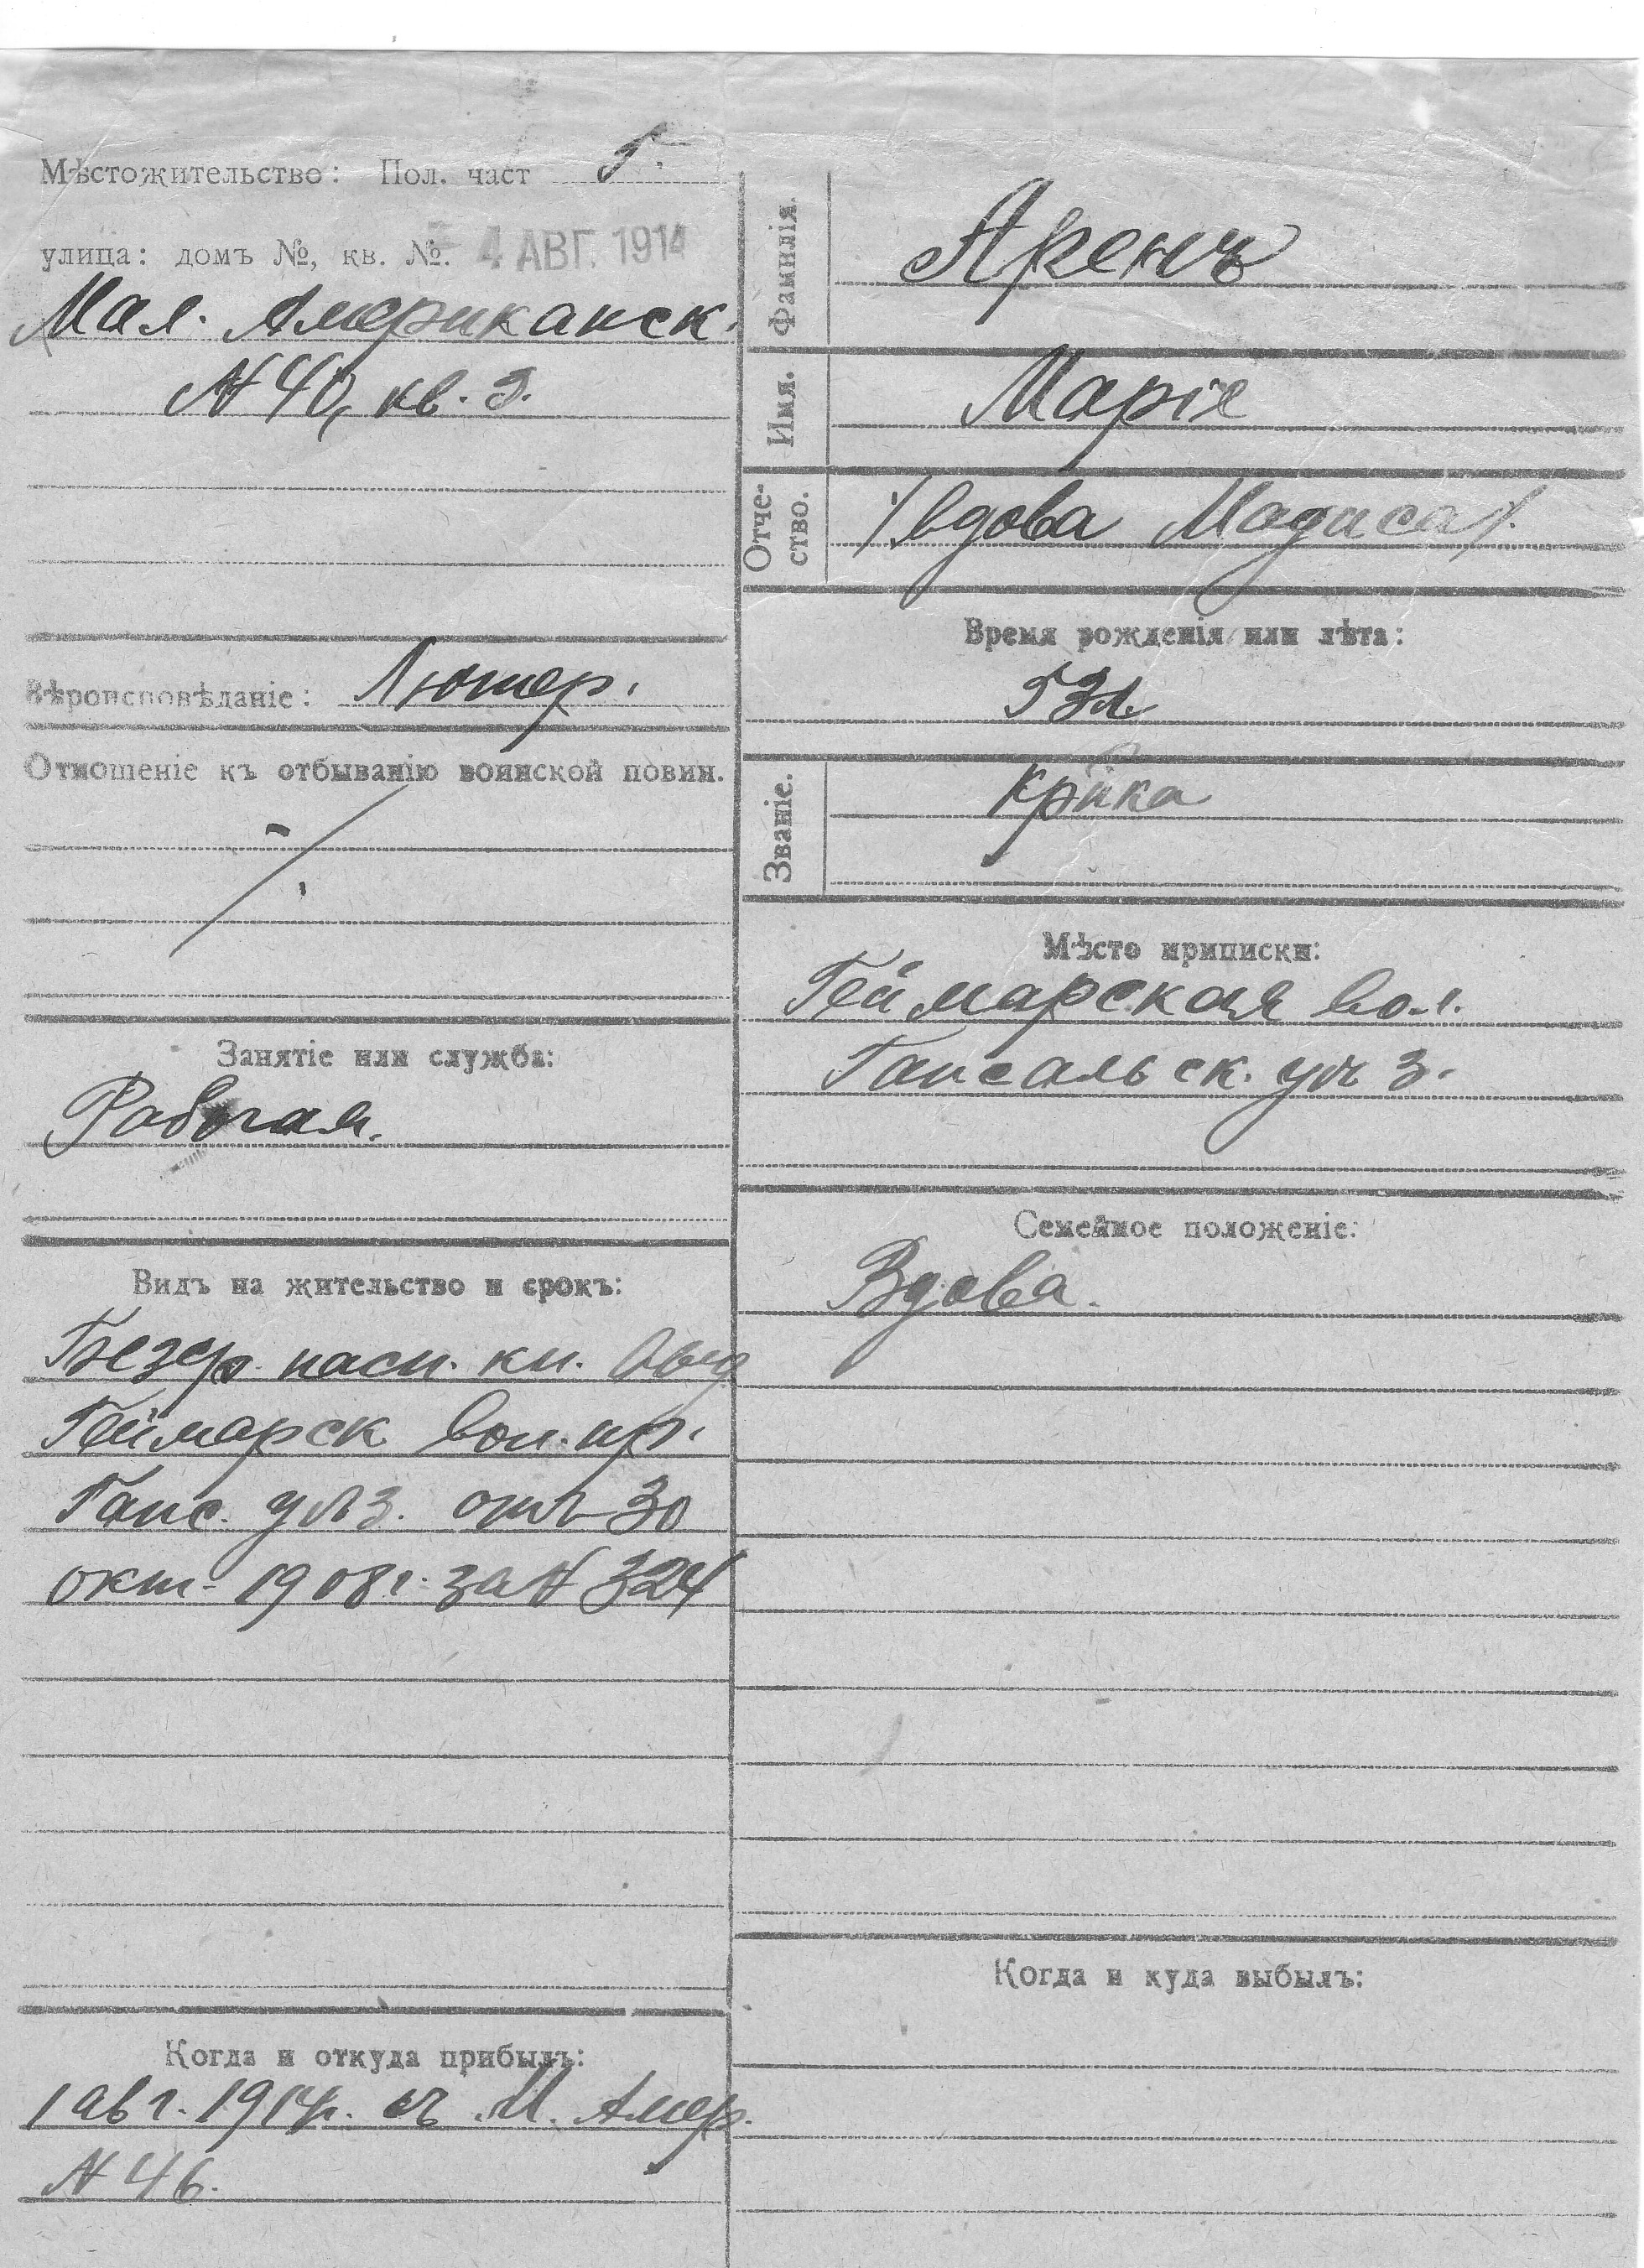 Мѣстожительство: Пол. част
улица: домъ №, кв. №.
4 АВГ. 1914
Мал. Американск.
N 40, кв.
Вѣроисповѣданіе: Лютер.
Отношеніе къ отбыванію воинской повин.
Занятіе или служба:
Рабочая.
Видъ на жительство и срокъ:
Безср. пасп. кн.
Геймарск вол. пр.
Гапс. уѣз. отъ 30
окт. 1908 г. за N 324
Когда и откуда прибылъ:
1 авг. 1914 г. съ М. Амер.
N 46.
Фамилія. Аренъ
Имя. Маріе
Отче-
ство. /вдова Мадиса/.
Время рожденія или лѣта:
53 л.
Званіе. Кр-ка
Мѣсто приписки:
Геймарская вол.
Гапсальск. уѣз.
Семейное положеніе:
Вдова.
Когда и куда выбылъ: